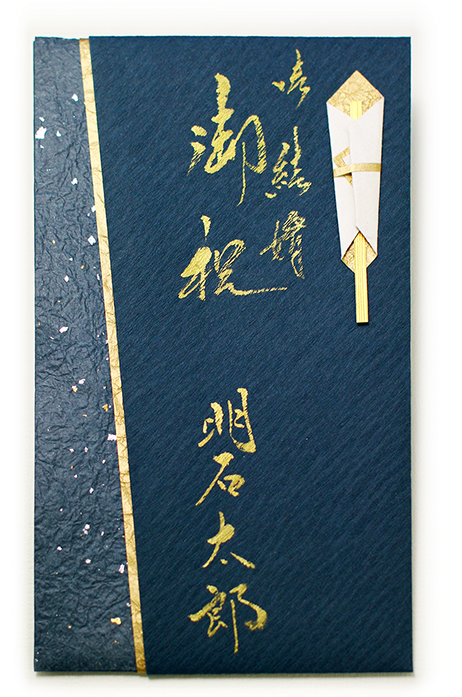 御結婚
御祝
明石太郎